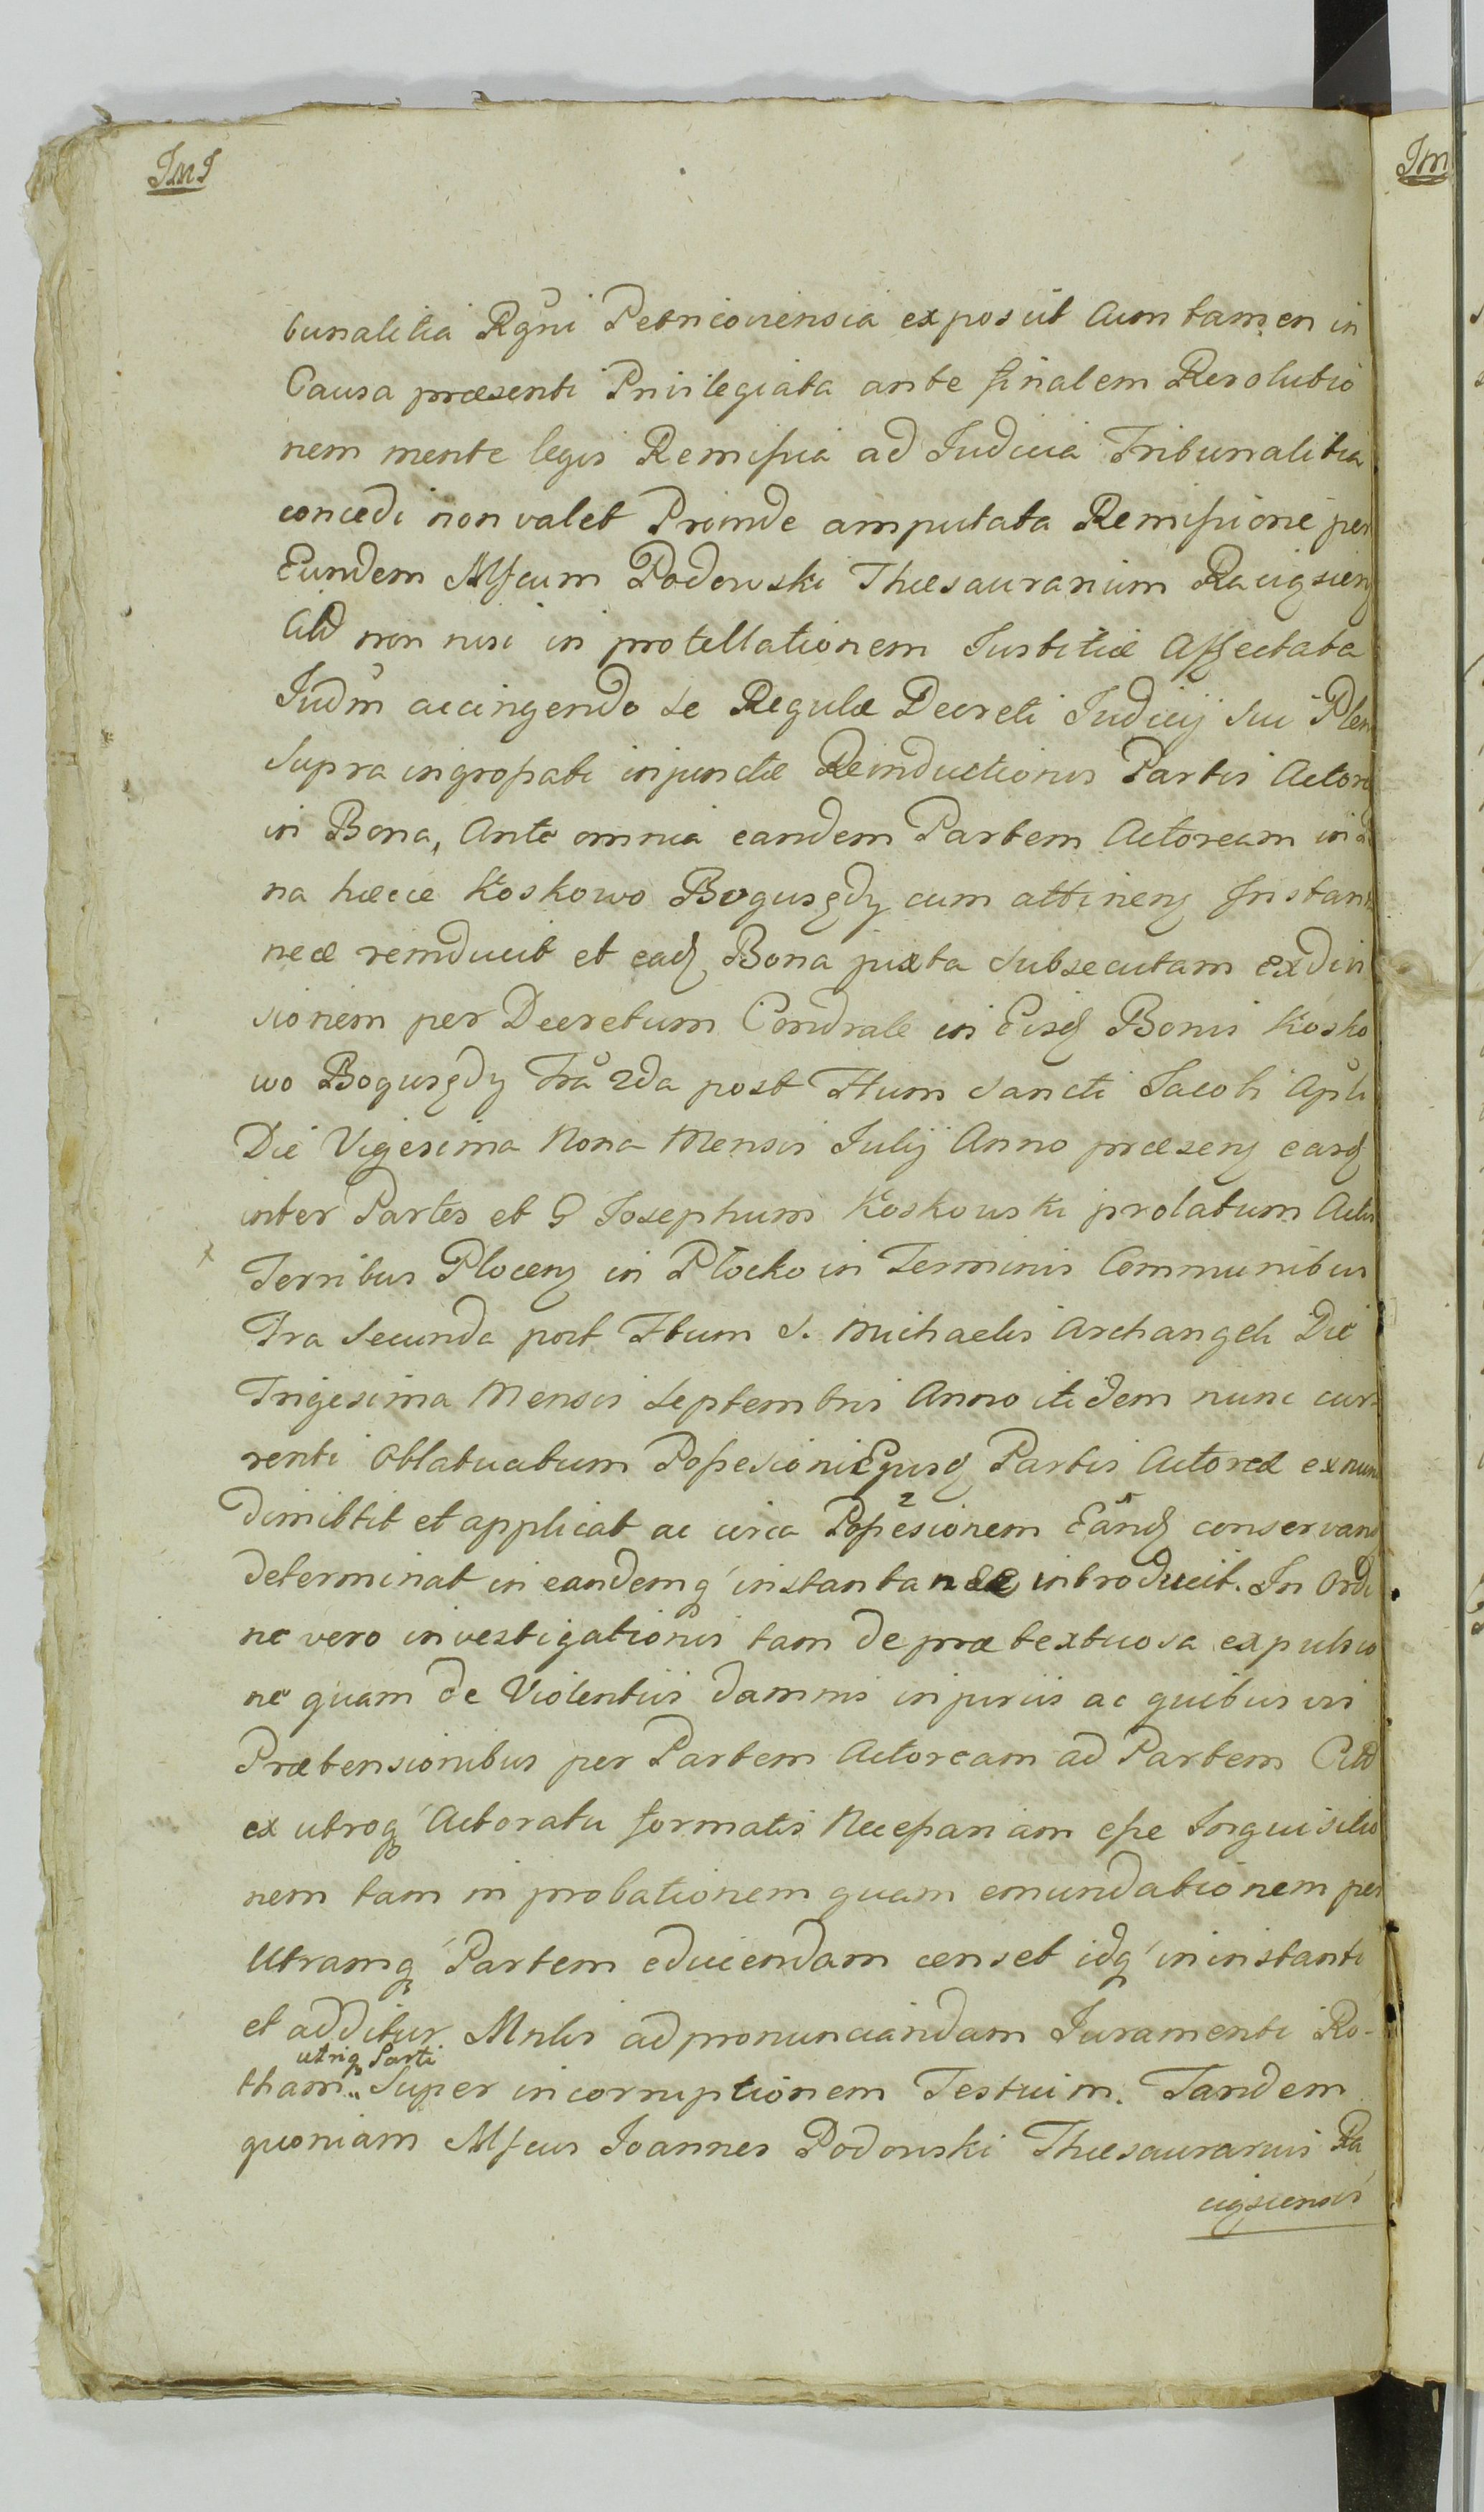 JMJ
bunalitia Rgni Petricoviensia exposuit Cum tamen in
Causa præsenti Privilegiata ante finalem Resolutio
nem mente legis Remissia ad Judicia Tribunalitia
concedi non valet Proinde amputata Remissione per
Eundem Mfcum Podowski Thesaurarium Raciąsien
Citd non nisi in protellationem Iustitiæ Affectata
Judm accingendo se Regulæ Decreti Judicij sui Plen
Supra ingrossati injunctæ Reinductionis Partis Actore
in Bona, Ante omnia eandem Partem Actoream in
na hæcce Koskowo Bogusędy cum attinen Instan
neæ reinducit et ead Bona juxta subsecutam exdivi
sionem per Decretum Condrale in Eisd Bonis Kosko
wo Bogusędy Fra 2da post Ftum Sancti Jacobi Apli
Die Vigesima Nona Mensis Julij Anno præsen easd
inter Partes et G Josephum Koskowski prolatum Actis
Terribus Plocen in Płocko in Terminis Communibus
Fra Secunda post Ftum S. Michaelis Archangeli Die
Trigesima Mensis Septembris Anno itidem nunc cur
renti Oblatuatum Possesioni Ejusd Partis Actoreæ ex nunc
dimittit et applicat ac circa Possesionem Eand conservan
determinat in eandemq instantanee introducit. In Ordi
ne vero investigationis tam de prætextuosa expulsio
ne quam de Violentiis damnis injuriis ac quibusvis
Prætensionibus per Partem Actoream ad Partem Citd
ex utroq Actoratu formatis Necessariam esse Inquisitio
nem tam in probationem quam emundationem per
Utramq Partem educendam censet idq in instanti
et additur Mnlis ad pronunciandam Juramenti Ro-
utriq Parti
tham Super incorruptionem Testium. Tandem
quoniam Mfcus Joannes Podowski Thesaurarius Ra
ciąsiensis
JM